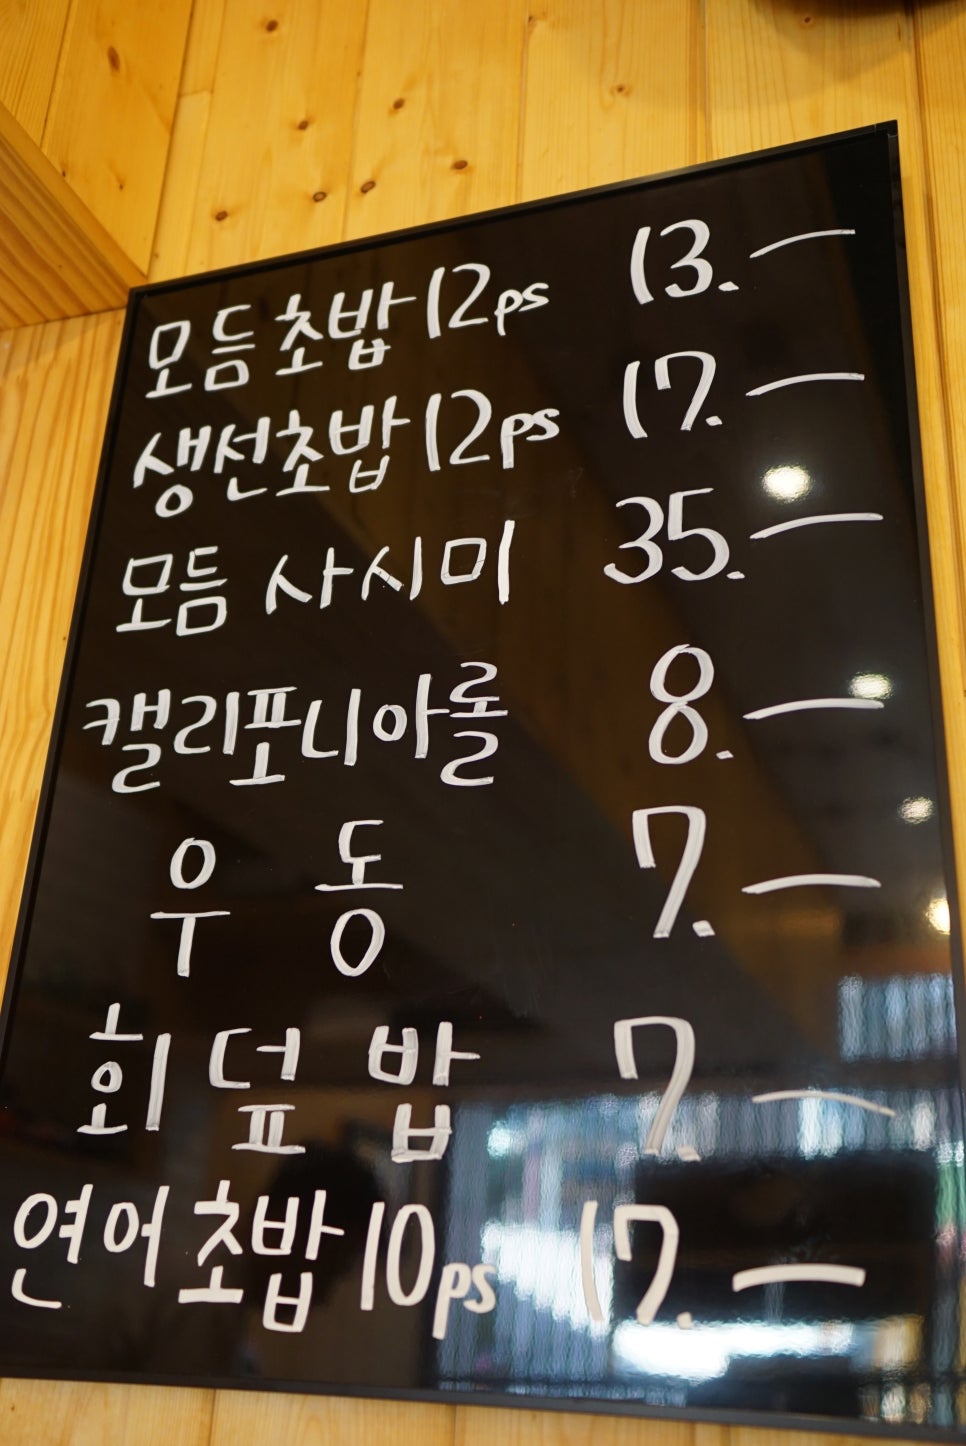 모듬초밥 12ps 13.—
생선초밥 12ps 17.—
모듬 사시미 35.—
캘리포니아롤 8.—
우 동 7.—
회 덮 밥 7.—
연어초밥 10ps 17.—